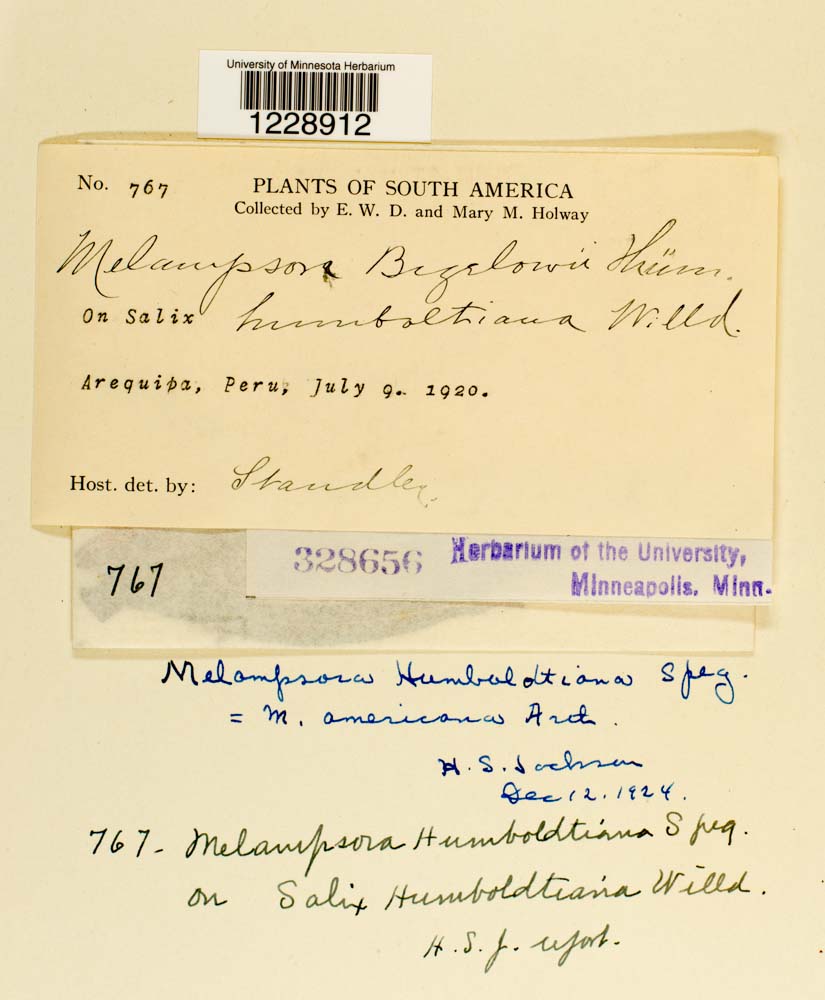 University of Minnesota Herbarium
1228912
No. 767
PLANTS OF SOUTH AMERICA
Collected by E. W. D. and Mary M. Holway
Melampsora Bigelowii Thüm.
On Salix humboltiana Willd.
Arequipa, Peru, July 9. 1920.
Host. det. by: Standley.
767
328656
Herbarium of the University,
Minneapolis. Minn.
Melampsora Humboldtiana Speg.
= M. americana Arth.
H. S. Jackson
Dec 12. 1924.
767- Melampsora Humboldtiana Speg.
on Salix Humboldtiana Willd.
H. S. J. report.